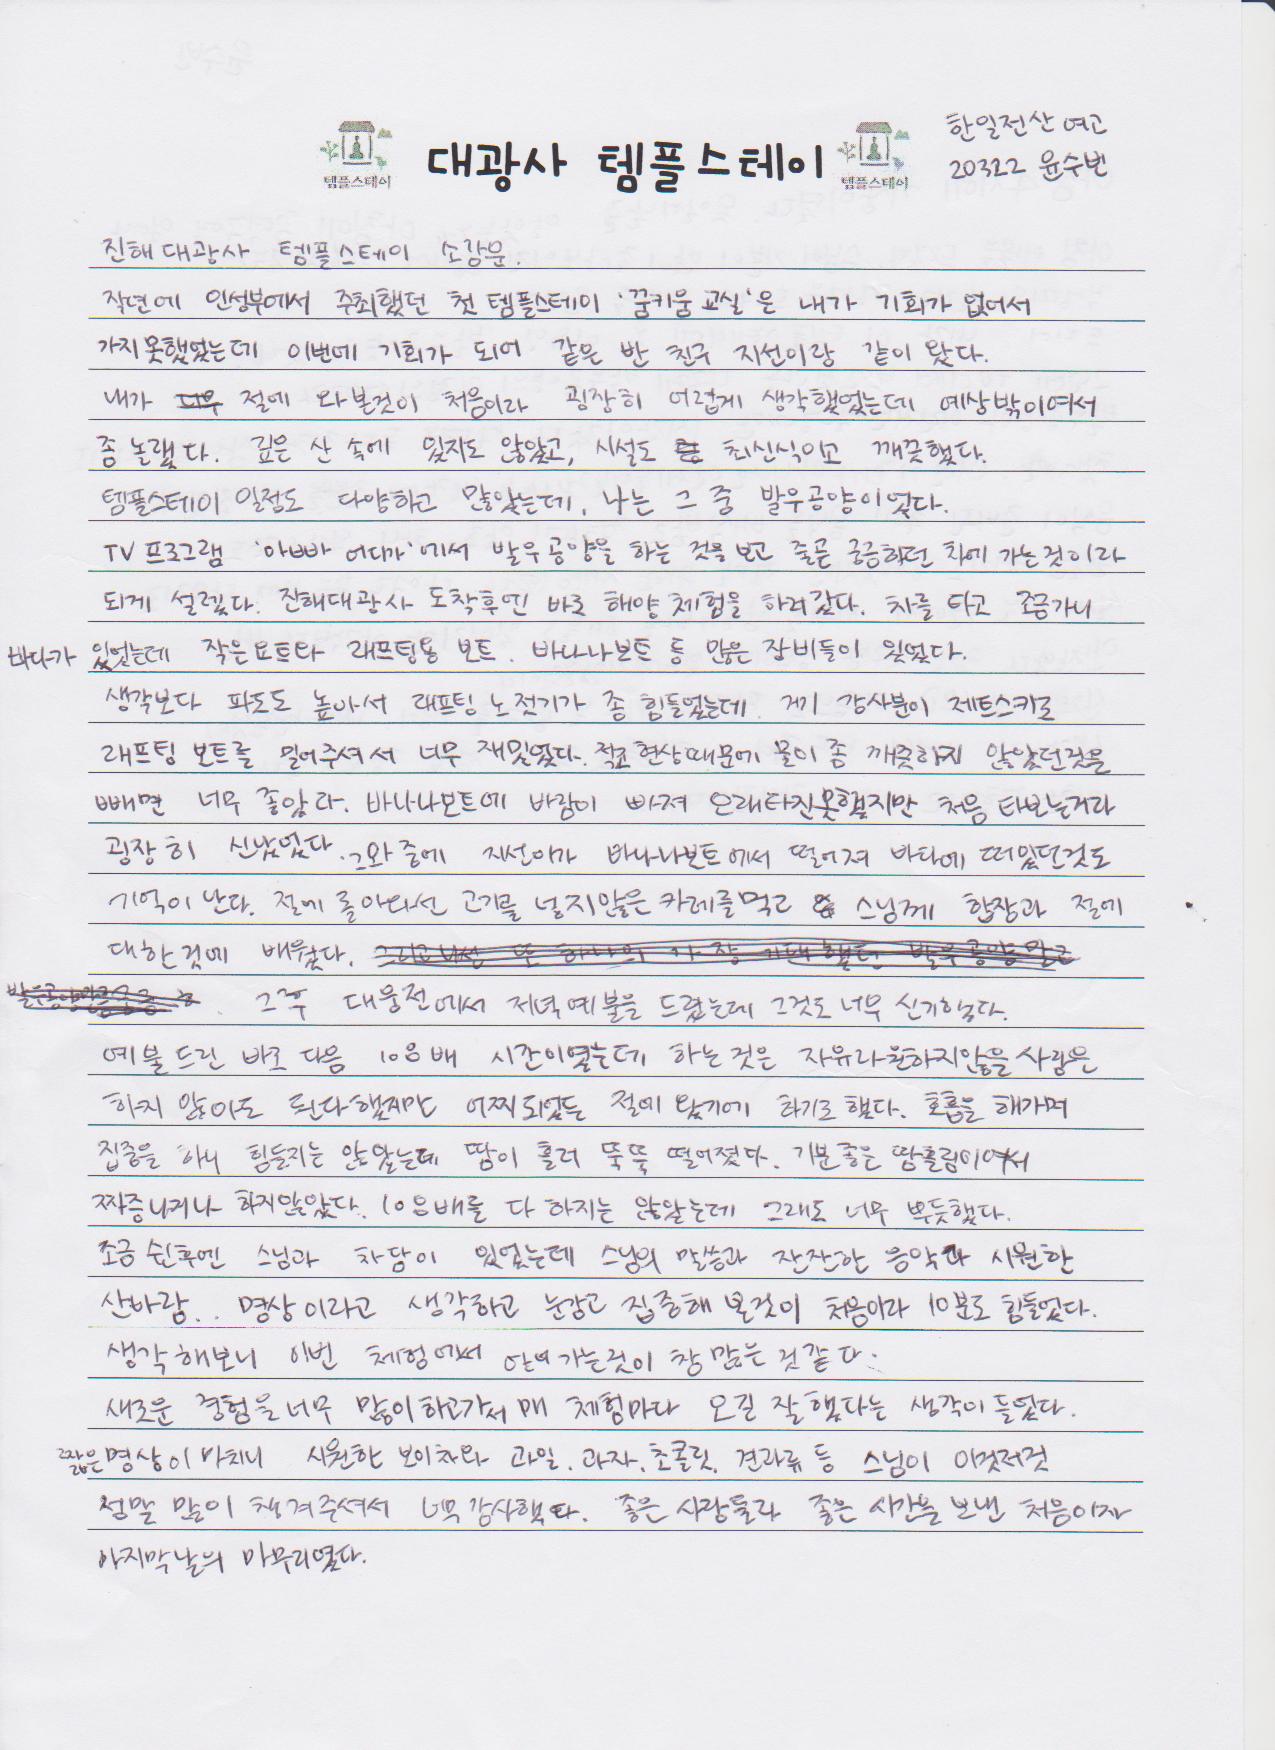 한일전산여고
템플스테이 대광사 템플스테이 템플스테이
20322 윤수빈
진해대광사 템플스테이 소감문.
작년에 인성부에서 주최했던 첫 템플스테이 '꿈키움교실'은 내가 기회가 없어서
가지못했었는데 이번에 기회가 되어 같은 반 친구 지선이랑 같이 왔다.
내가 절에 와본것이 처음이라 굉장히 어렵게 생각했었는데 예상밖이여서
좀 놀랬다. 깊은 산 속에 있지도 않았고, 시설도 최신식이고 깨끗했다.
템플스테이 일정도 다양하고 많았는데, 나는 그 중 발우공양이었다.
TV프로그램 '아빠 어디가'에서 발우공양을 하는 것을 보고 줄곧 궁금하던 차에 가는것이라
되게 설렜다. 진해대광사 도착후엔 바로 해양체험을 하러갔다. 차를 타고 조금가니
바다가 있었는데 작은요트와 래프팅용 보트, 바나나보트 등 많은 장비들이 있었다.
생각보다 파도도 높아서 래프팅 노 젓기가 좀 힘들었는데 거기 강사분이 제트스키로
래프팅 보트를 밀어주셔서 너무 재밌었다. 적조현상때문에 물이 좀 깨끗하지 않았던것을
빼면 너무 좋았다. 바나나보트에 바람이 빠져 오래타진못했지만 처음 타보는거라
굉장히 신났었다. 그와중에 지선이가 바나나보트에서 떨어져 바다에 떠있던것도
기억이 난다. 절에 돌아와선 고기를 넣지않은 카레를먹고 스님께 합장과 절에
대한 것에 배웠다.
그 후 대웅전에서 저녁예불을 드렸는데 그것도 너무 신기했다.
예불드린 바로 다음 108배 시간이였는데 하는것은 자유라 원하지않을 사람은
하지 않아도 된다했지만 어찌되었든 절에 왔기에 하기로 했다. 호흡을 해가며
집중을 하니 힘들지는 않았는데 땀이 흘러 뚝뚝 떨어졌다. 기분좋은 땀흘림이여서
짜증나거나 하지않았다. 108배를 다 하지는 않았는데 그래도 너무 뿌듯했다.
조금 쉰후엔 스님과 차담이 있었는데 스님의 말씀과 잔잔한 음악과 시원한
산바람.. 명상이라고 생각하고 눈감고 집중해 본것이 처음이라 10분도 힘들었다.
생각해보니 이번 체험에서 얻어가는것이 참 많은 것 같다.
새로운 경험을 너무 많이하고가서 매 체험마다 오길 잘 했다는 생각이 들었다.
짧은 명상이 마치니 시원한 보이차와 과일, 과자, 초콜릿, 견과류 등 스님이 이것저것
정말 많이 챙겨주셔서 너무 감사했다. 좋은 사람들과 좋은 시간을 보낸 처음이자
마지막날의 마무리였다.